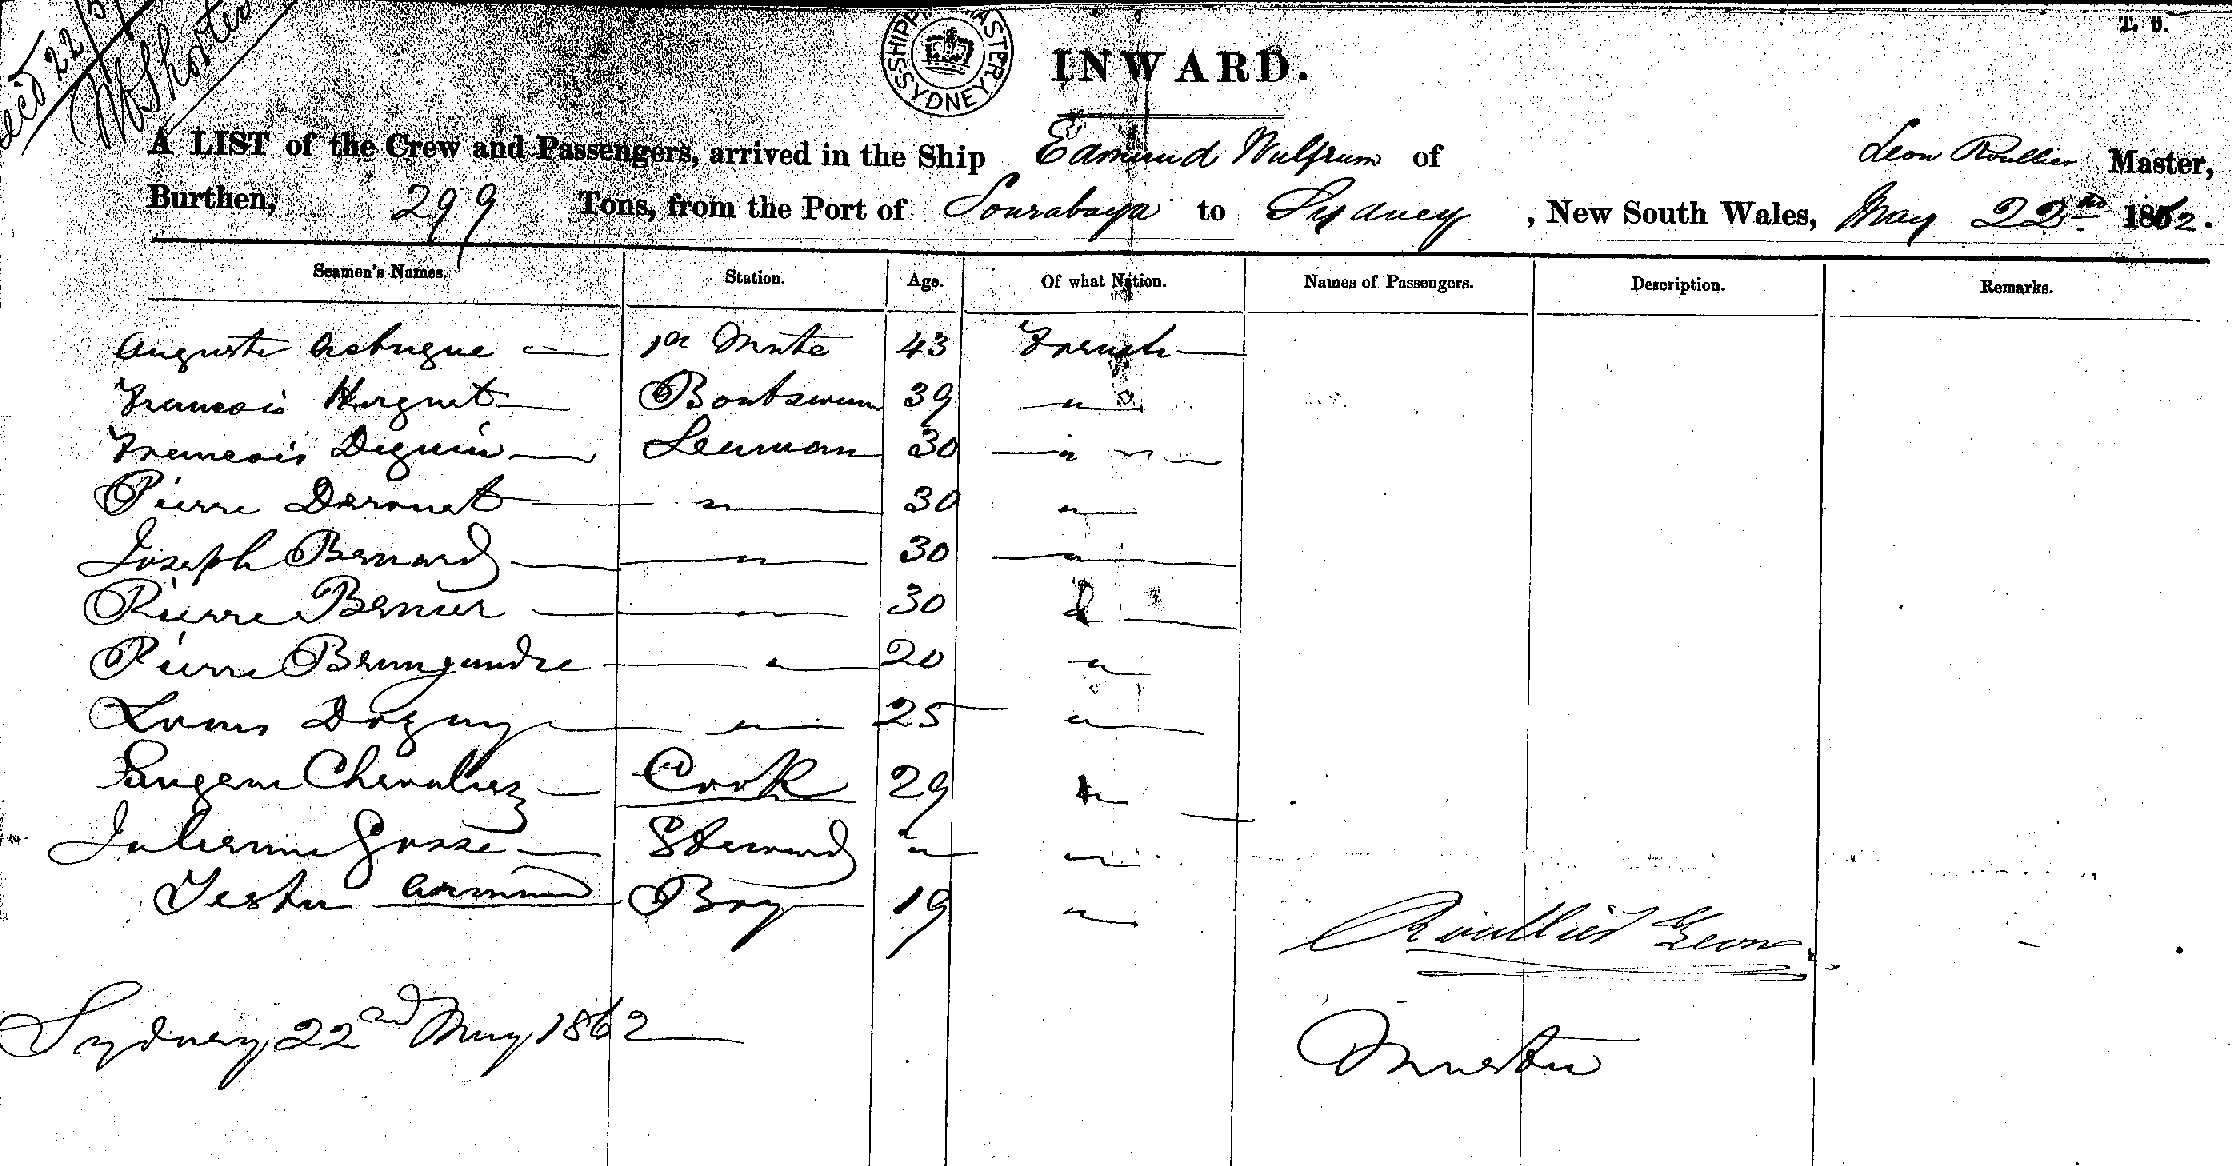 Rec'd 22/5
SHIPPING MASTER SYDNEY
T. D.
INWARD.
A LIST of the Crew and Passengers, arrived in the Ship Edmund Wulfrum of Leon Roullier Master,
Burthen, 299 Tons, from the Port of Sourabaya to Sydney, New South Wales, May 22nd 1862.
Seamen's Names. Station. Age. Of what Nation. Names of Passengers. Description. Remarks.
Auguste 1st Mate 43 French
Francois Huguet Boatswain 39 "
Francois Seaman 30 "
Pierre Derouet " 30 "
Joseph Bernard " 30 "
Pierre Bernier " 30 "
Pierre " 20 "
Louis " 25 "
Eugene Chevalier Cook 29 "
Gosse Steward " "
Testu Boy 19 "
Roullier Leon
Sydney 22nd May 1862
Master